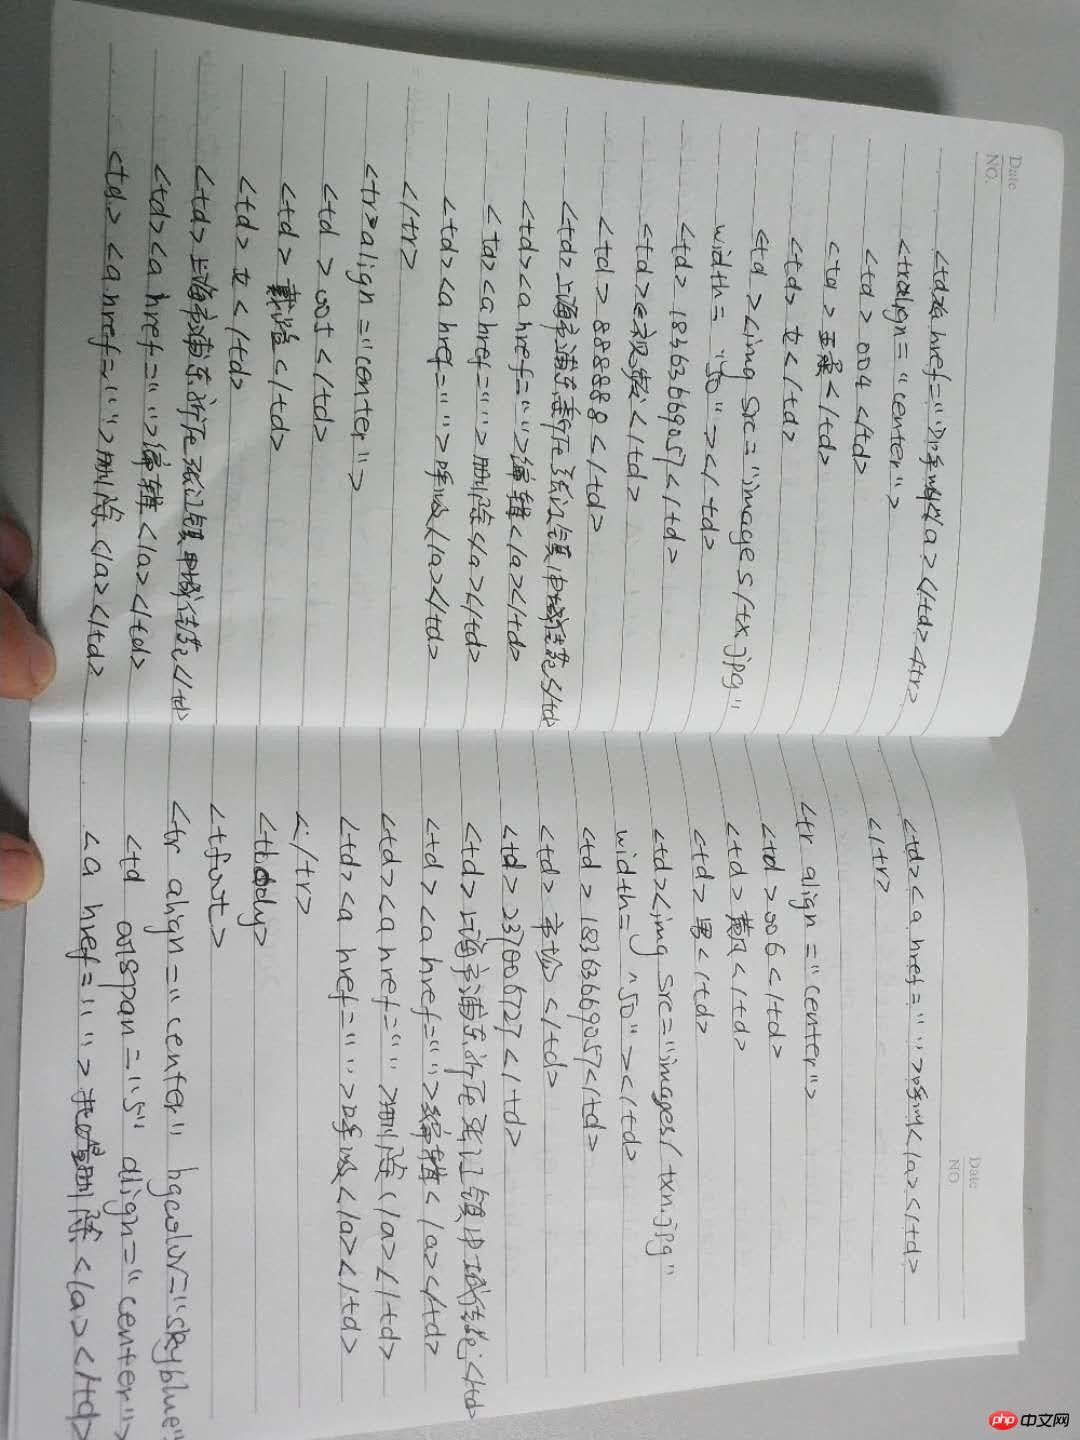 Date
NO.
<td><a href="">呼叫</a></td></tr>
<tr align="center">
<td>004</td>
<td></td>
<td>女</td>
<td><img src="images/tx.jpg"
width="50"></td>
<td>18363669057</td>
<td></td>
<td>88888</td>
<td>上海市浦东新区张江镇中城佳苑</td>
<td><a href="">编辑</a></td>
<td><a href="">删除</a></td>
<td><a href="">呼叫</a></td>
</tr>
<tr align="center">
<td>005</td>
<td>戴</td>
<td>女</td>
<td>上海市浦东新区张江镇中城佳苑</td>
<td><a href="">编辑</a></td>
<td><a href="">删除</a></td>
Date
NO.
<td><a href="">呼叫</a></td>
</tr>
<tr align="center">
<td>006</td>
<td></td>
<td>男</td>
<td><img src="images/txn.jpg"
width="50"></td>
<td>18363669057</td>
<td></td>
<td>237006727</td>
<td>上海市浦东新区张江镇中城佳苑</td>
<td><a href="">编辑</a></td>
<td><a href="">删除</a></td>
<td><a href="">呼叫</a></td>
</tr>
<tbody>
<tfoot>
<tr align="center" bgcolor="skyblue"
<td colspan="5" align="center">
<a href="">批量删除</a></td>
php 中文网